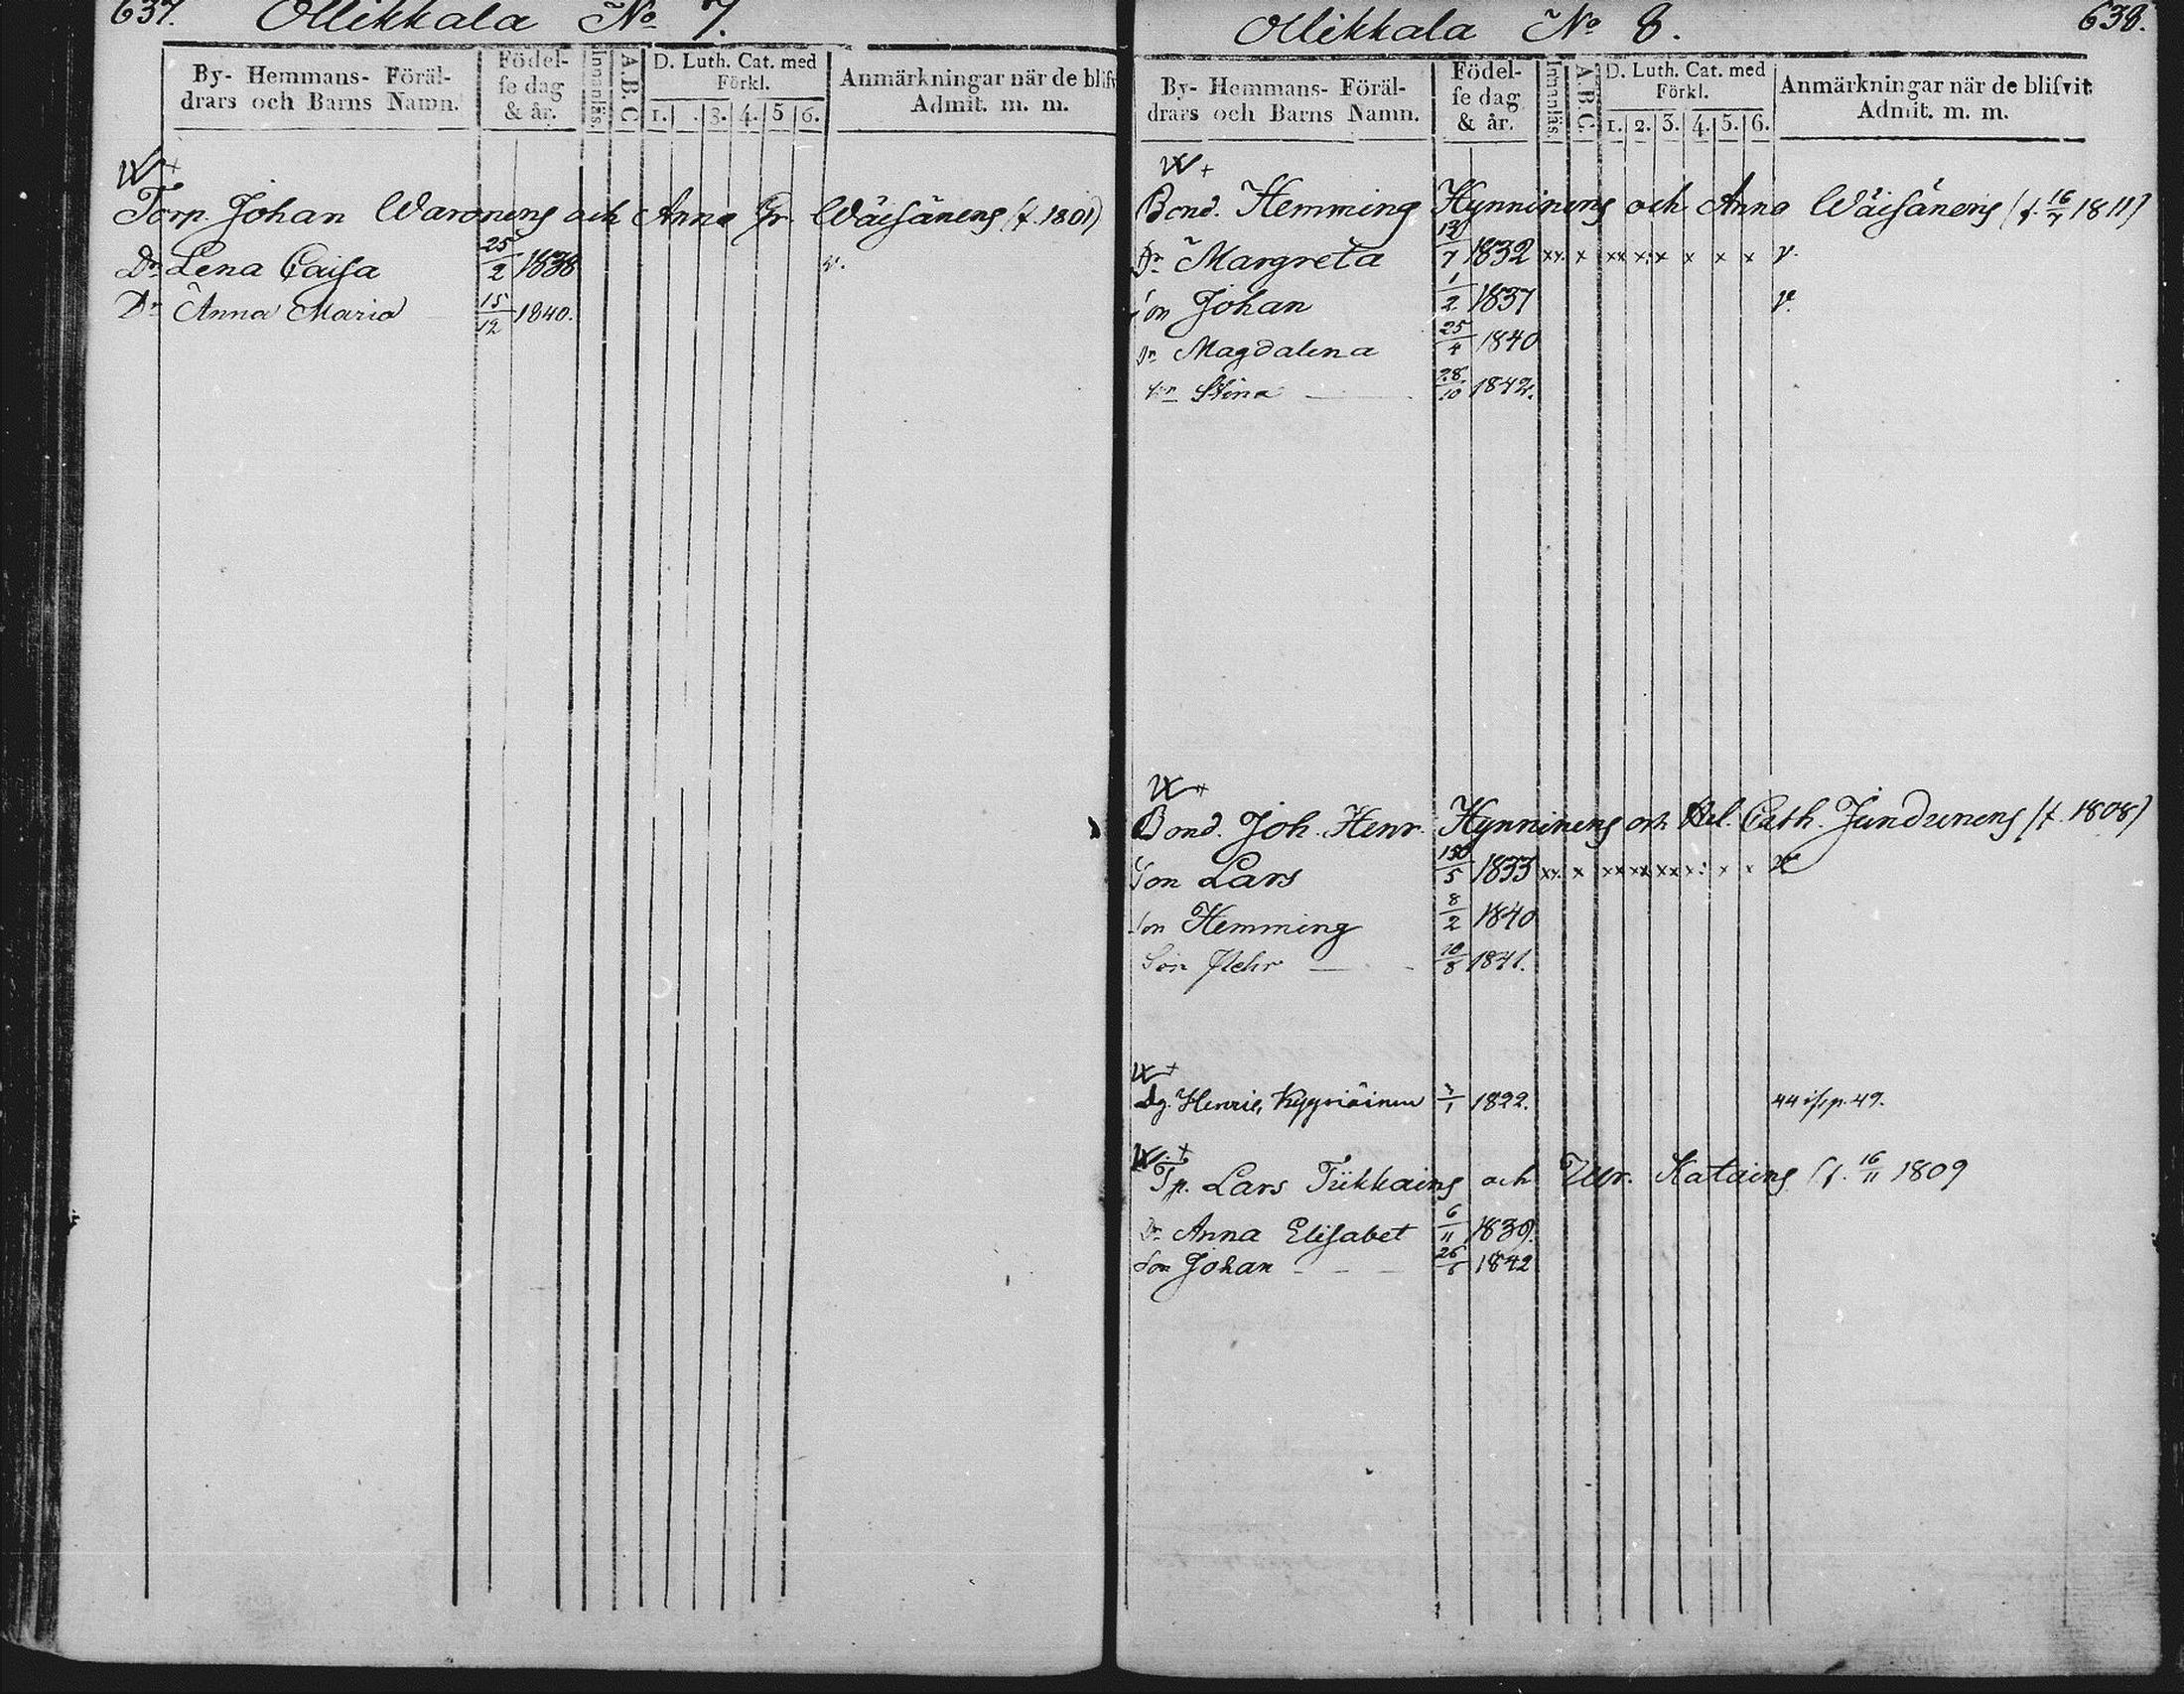 637. Ollikkala No 7.
By- Hemmans- Föräl-
drars och Barns Namn.
Födel-
se dag
& år.
Innanläs.
A.B.C
D. Luth. Cat. med
Förkl.
1. . 3. 4. 5 6.
Anmärkningar när de blifv
Admit. m. m.
Torp. Johan Waronens och Anna Gr. Wäisänens (f. 1801)
Dr Lena Caisa 25/2 1838 v.
Dr Anna Maria 15/12 1840.
Ollikkala No 8. 638.
By- Hemmans- Föräl-
drars och Barns Namn.
Födel-
se dag
& år.
Innanläs.
A.B.C.
D. Luth. Cat. med
Förkl.
1. 2. 3. 4. 5. 6.
Anmärkningar när de blifvit
Admit. m. m.
Bond. Hemming Hynninens och Anna Wäisänens (f. 16/7 1811)
Dr Margreta /7 1832 xx x xx xx x x x v.
Son Johan 1/2 1837 v.
Dr Magdalena 25/4 1840
Stina 28/10 1842.
Bond. Joh. Henr. Hynninens och Hel. Cath. Jundunens (f. 1808)
Son Lars /5 1833 xx x xx xx xx x x x
Son Hemming 8/2 1840
Son Pehr 10/8 1841.
Dg. Henric 1822. 44 p. 49.
Tp. Lars Tukkains och Katains (f. 16/11 1809
Dr Anna Elisabet 6/11 1839.
Son Johan 26/ 1842